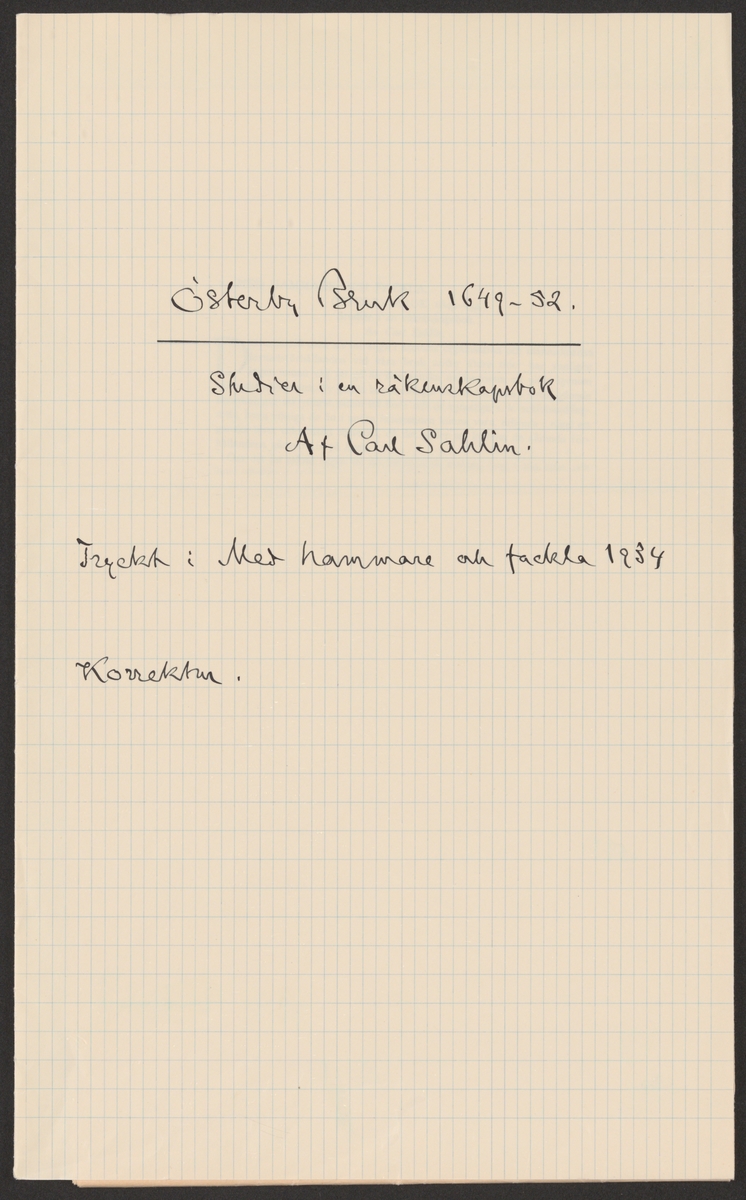 Österby Bruk 1649-52.
Studier i en räkenskapsbok
Af Carl Sahlin.
Tryckt i Med hammare och fackla 1934
Korrektur.